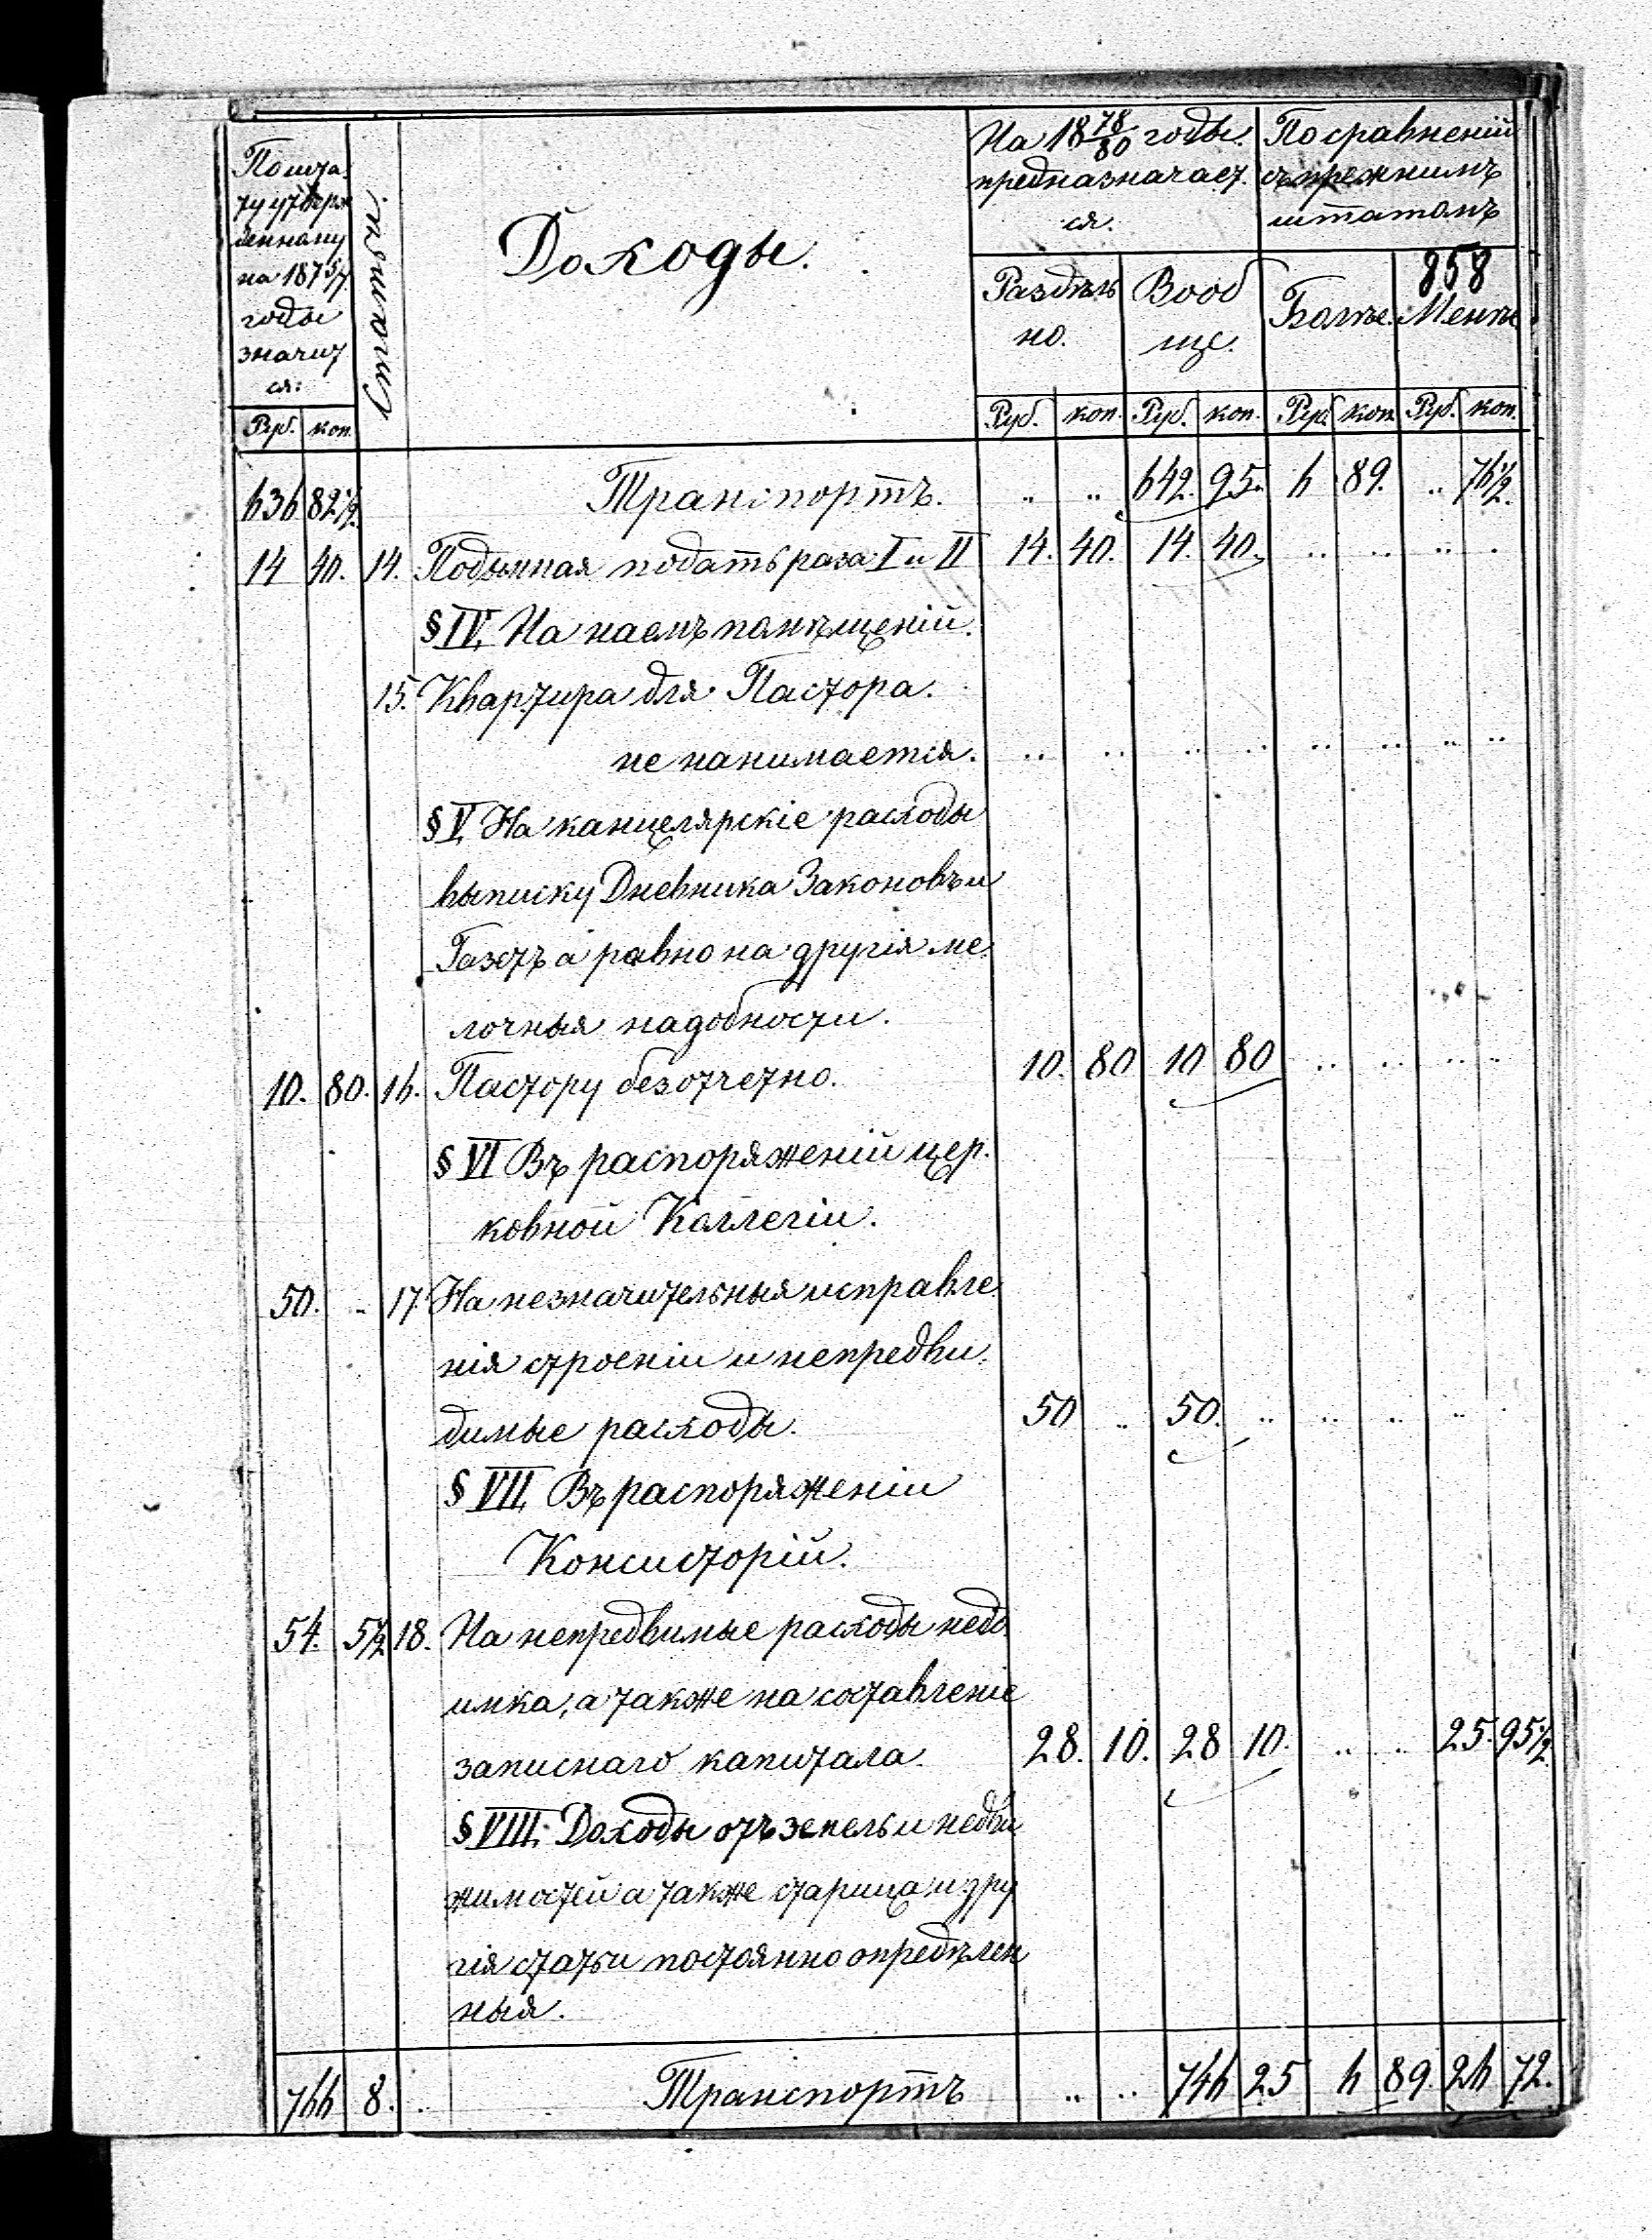 По шта-
ту утверж
денному
на 187 5/7
годы
значит
ся:
Статьи.
Доходы.
На 18 78/80 годы
предназначает
ся.
По сравненій
съ прежнимъ
штатомъ
858
Раздѣль
но.
Вооб
ще.
Болѣе.
Менѣе
Руб. коп. Руб. коп. Руб. коп. Руб. коп. Руб. коп.
636 82½ Транспортъ. .. .. 642. 95. 6 89. .. 76½.
14 40. 14. Подымная подать раза I и II 14. 40. 14. 40. .. .. .. .
§ IV. На наемъ помѣщеній.
15. Квартира для Пастора.
не нанимается. .. .. .. .. .. .. .. ..
§ V. На канцелярскіе расходы
выписку Дневника Законовъ и
Газетъ а равно на другія ме-
лочныя надобности.
10. 80. 16. Пастору безотчетно. 10. 80 10 80 .. .. .. ..
§ VI Въ распоряженій цер-
ковной Коллегіи.
50. .. 17. На незначительныя исправле-
нія строеніи и непредви-
димые расходы. 50 .. 50. .. .. .. .. .
§ VII. Въ распоряженіи
Консисторій.
54. 5½ 18. На непредвимые расходы недо
имка, а также на составленіе
записнаго капитала. 28. 10. 28 10. .. .. 25. 95½.
§ VIII. Доходы отъ земель и недви
жимостей а также старица и дру
гія статьи постоянно опредѣлен
ныя.
766 8. .. Транспортъ .. .. 746 25 6 89. 26 72.